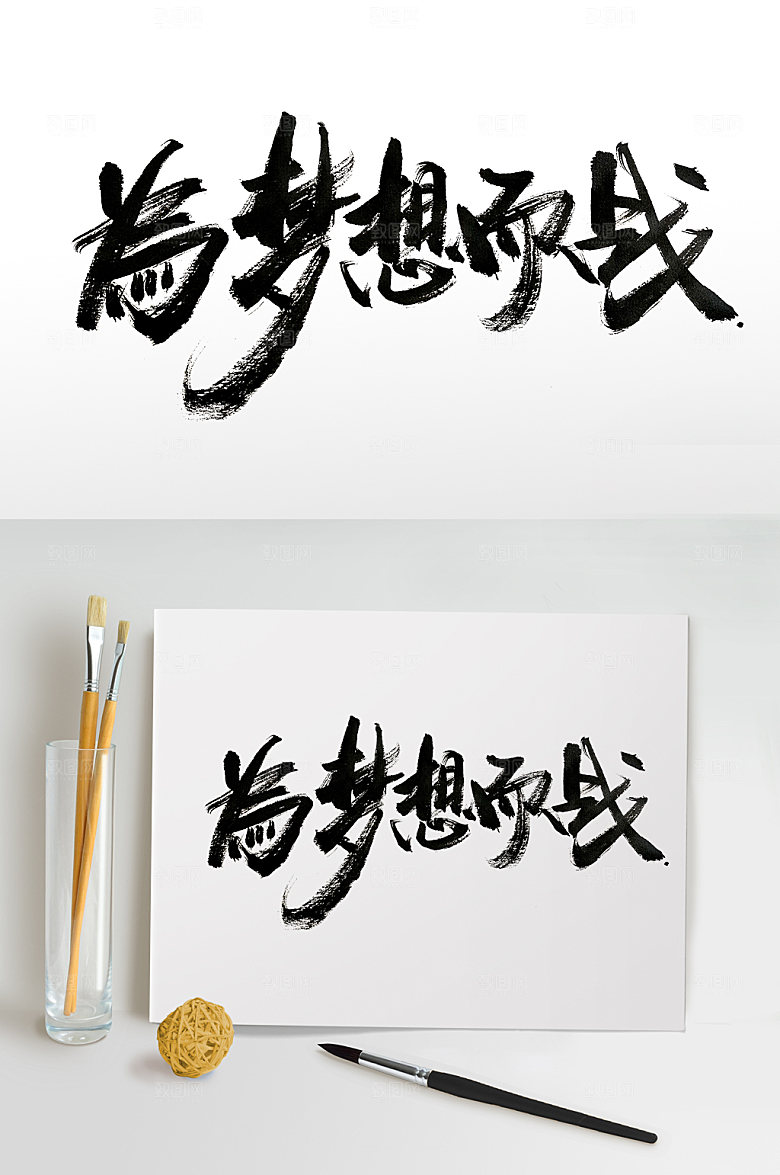 为梦想而战
为梦想而战